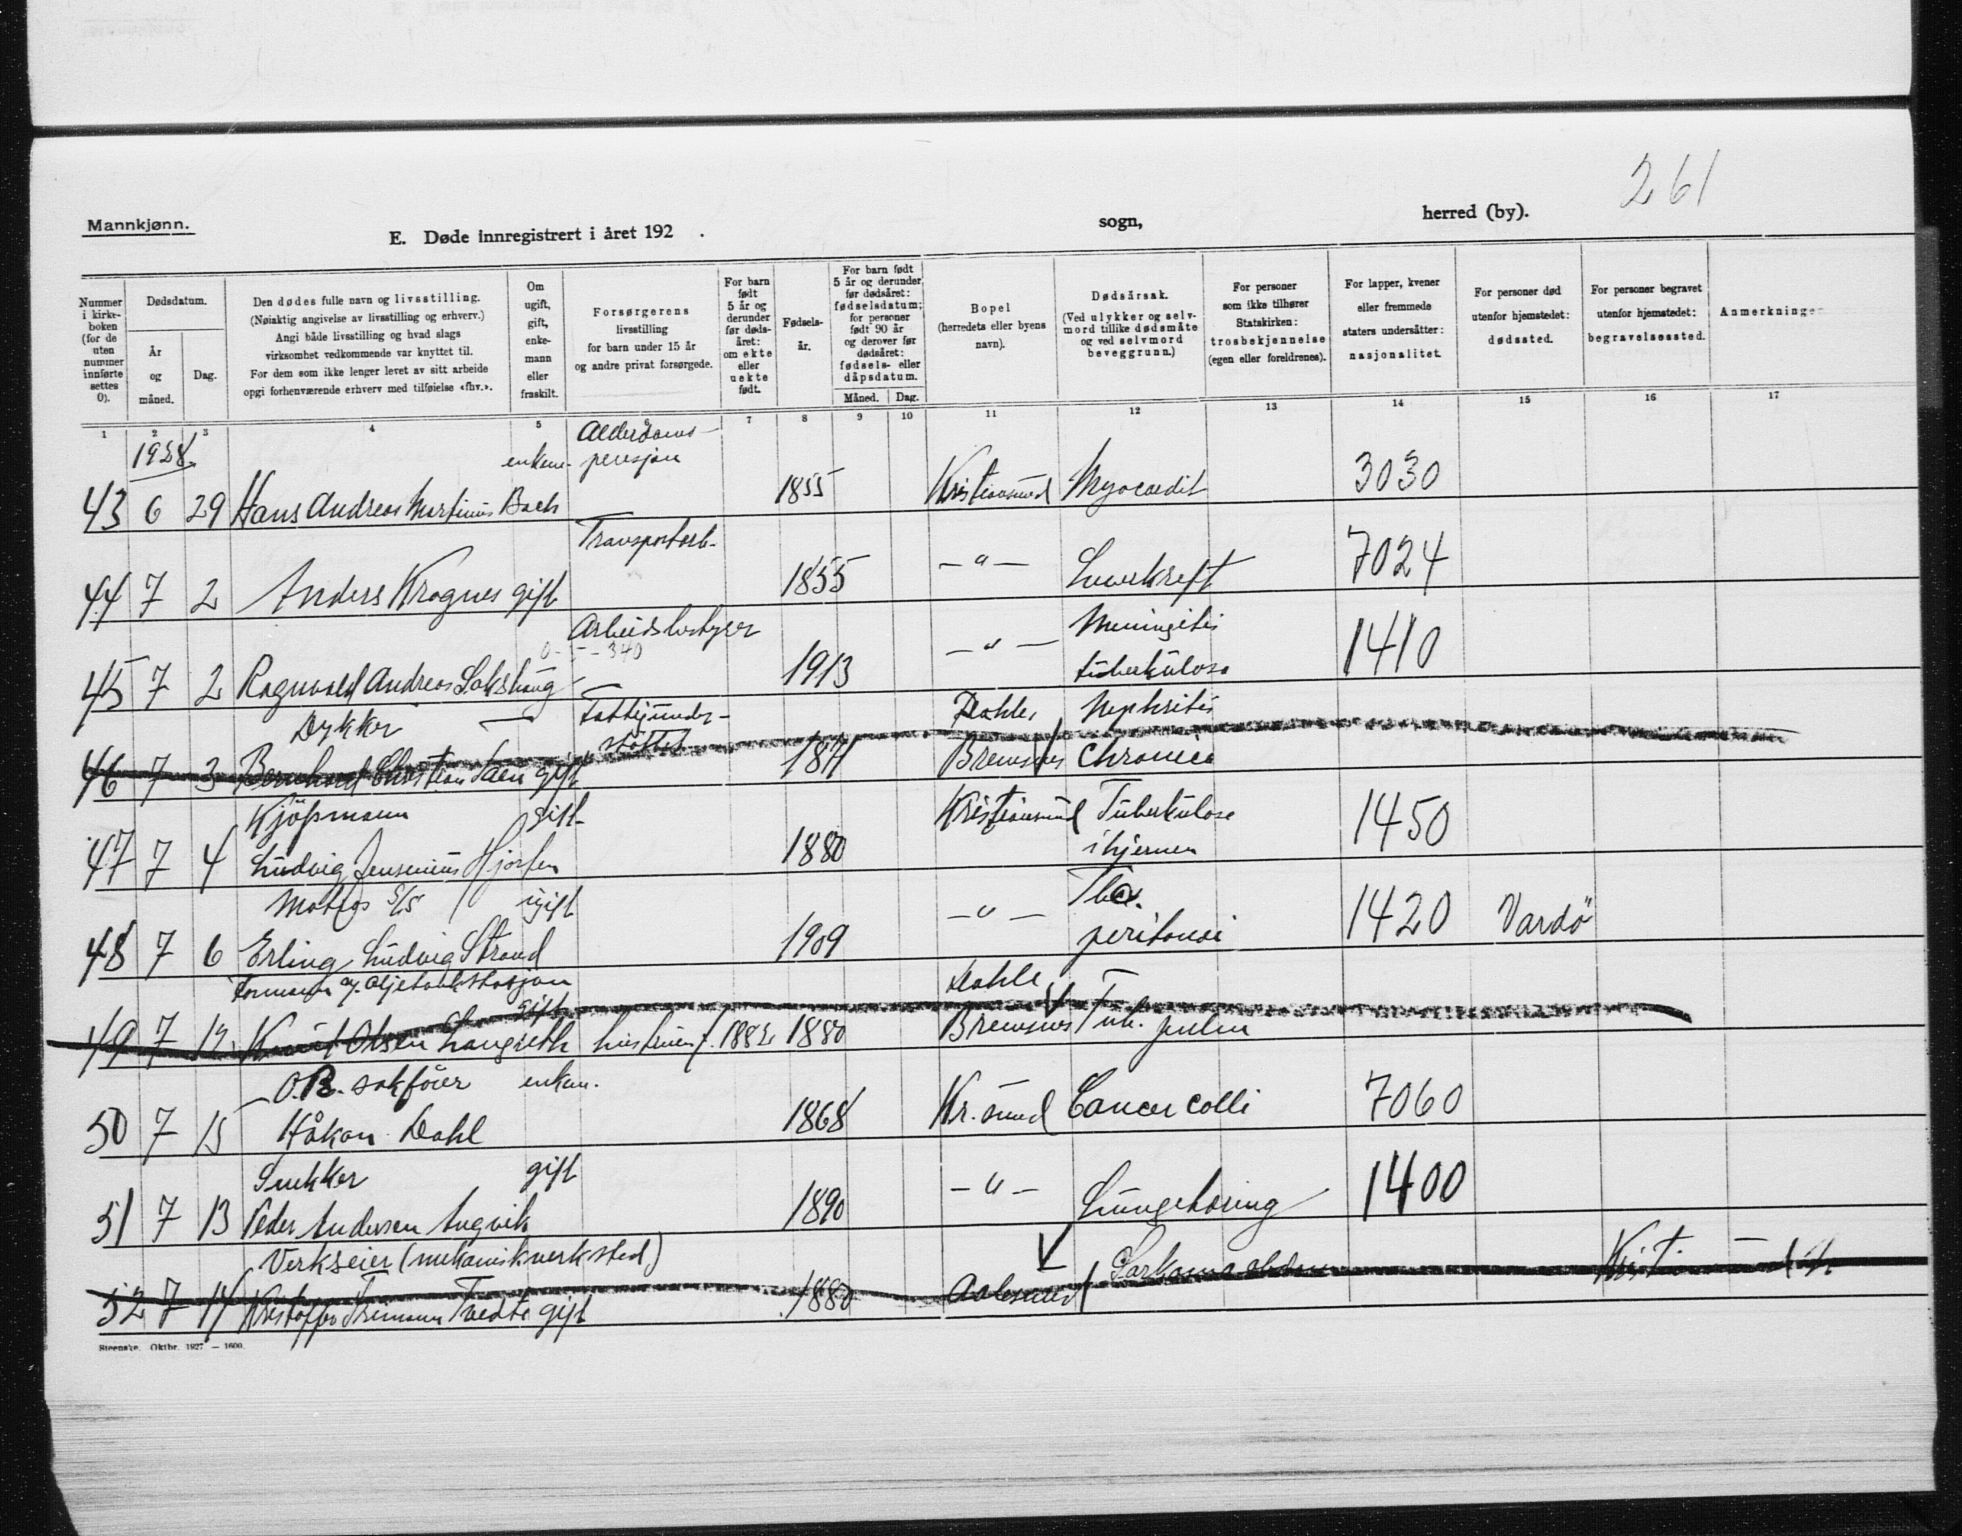 261
Mannkjønn.
E. Døde innregistrert i året 192 .
sogn,
herred (by).
Nummer i kirkeboken (for de uten nummer innførte settes 0).
Dødsdatum.
År og måned.
Dag.
Den dødes fulle navn og livsstilling.
(Nøiaktig angivelse av livsstilling og erhverv.)
Angi både livsstilling og hvad slags
virksomhet vedkommende var knyttet til.
For dem som ikke lenger levet av sitt arbeide
opgi forhenværende erhverv med tilføielse «fhv.».
Om ugift, gift, enkemann eller fraskilt.
Forsørgerens
livsstilling
for barn under 15 år
og andre privat forsørgede.
For barn født 5 år og derunder før dødsåret: om ekte eller uekte født.
Fødselsår.
For barn født 5 år og derunder før dødsåret: fødselsdatum; for personer født 90 år og derover før dødsåret: fødsels- eller dåpsdatum.
Måned.
Dag.
Bopel
(herredets eller byens
navn).
Dødsårsak.
(Ved ulykker og selvmord tillike dødsmåte
og ved selvmord
beveggrunn.)
For personer
som ikke tilhører
Statskirken:
trosbekjennelse
(egen eller foreldrenes).
For lapper, kvener
eller fremmede
staters undersåtter:
nasjonalitet.
For personer død
utenfor hjemstedet:
dødssted.
For personer begravet
utenfor hjemstedet:
begravelsessted.
Anmerkninger
1 2 3 4 5 6 7 8 9 10 11 12 13 14 15 16 17
1928
enkem. Alderdoms-
pensjon
43 6 29 Hans Andreas Martinus Bach 1855 Kristiansund Myocardit 3030
Transportarb.
44 7 2 Anders Krognes gift 1855 — " — Leverkreft 7024
Arbeidsbestyrer
0 - 5 - 340
45 7 2 Ragnvald Andreas Lokshaug 1913 — " — Meningitis
tuberkulosa 1410
Dykker — Fattigunder-
støttet Dahle, Nephritis
46 7 3 Bernhard Christian gift 1871 Bremsnes Chronica
Kjøpmann gift
47 7 4 Ludvig Jensenius Hjorten 1880 Kristiansund Tuberkulose
i hjernen 1450
Matros S/S ugift
48 7 6 Erling Ludvig Strand 1909 — " — Tbc.
peritonei 1420 Vardö
Formann oljetankstasjon
gift Dahle,
49 7 12 Knut Olsen Langseth hustruen f. 1882 1880 Bremsnes Tub. pulm
O.R. sakfører enkem.
50 7 15 Håkon Dahl 1868 Kr.sund Cancer colli 7060
Snekker gift
51 7 13 Peder Andersen Angvik 1890 — " — Lungetæring 1400
Verkseier (mekanisk verksted)
52 7 14 Kristoffer Tvedte gift 1880 Aalesund Sarkoma
Steenske. Oktbr. 1927. — 1600.